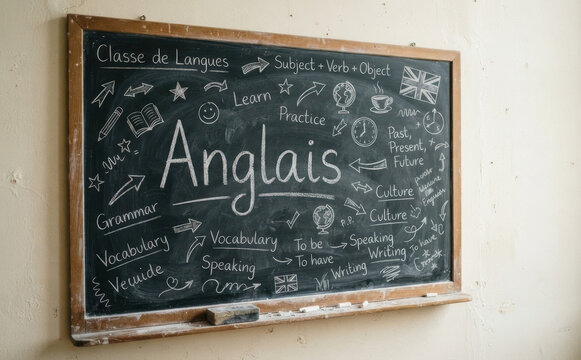 Classe de Langues
Subject + Verb + Object
Learn
Practice
Past,
Present,
Future
Anglais
Culture
Culture
Grammar
Vocabulary
Vewuide
Vocabulary
Speaking
To be
To have
Speaking
Writing
Writing
To have